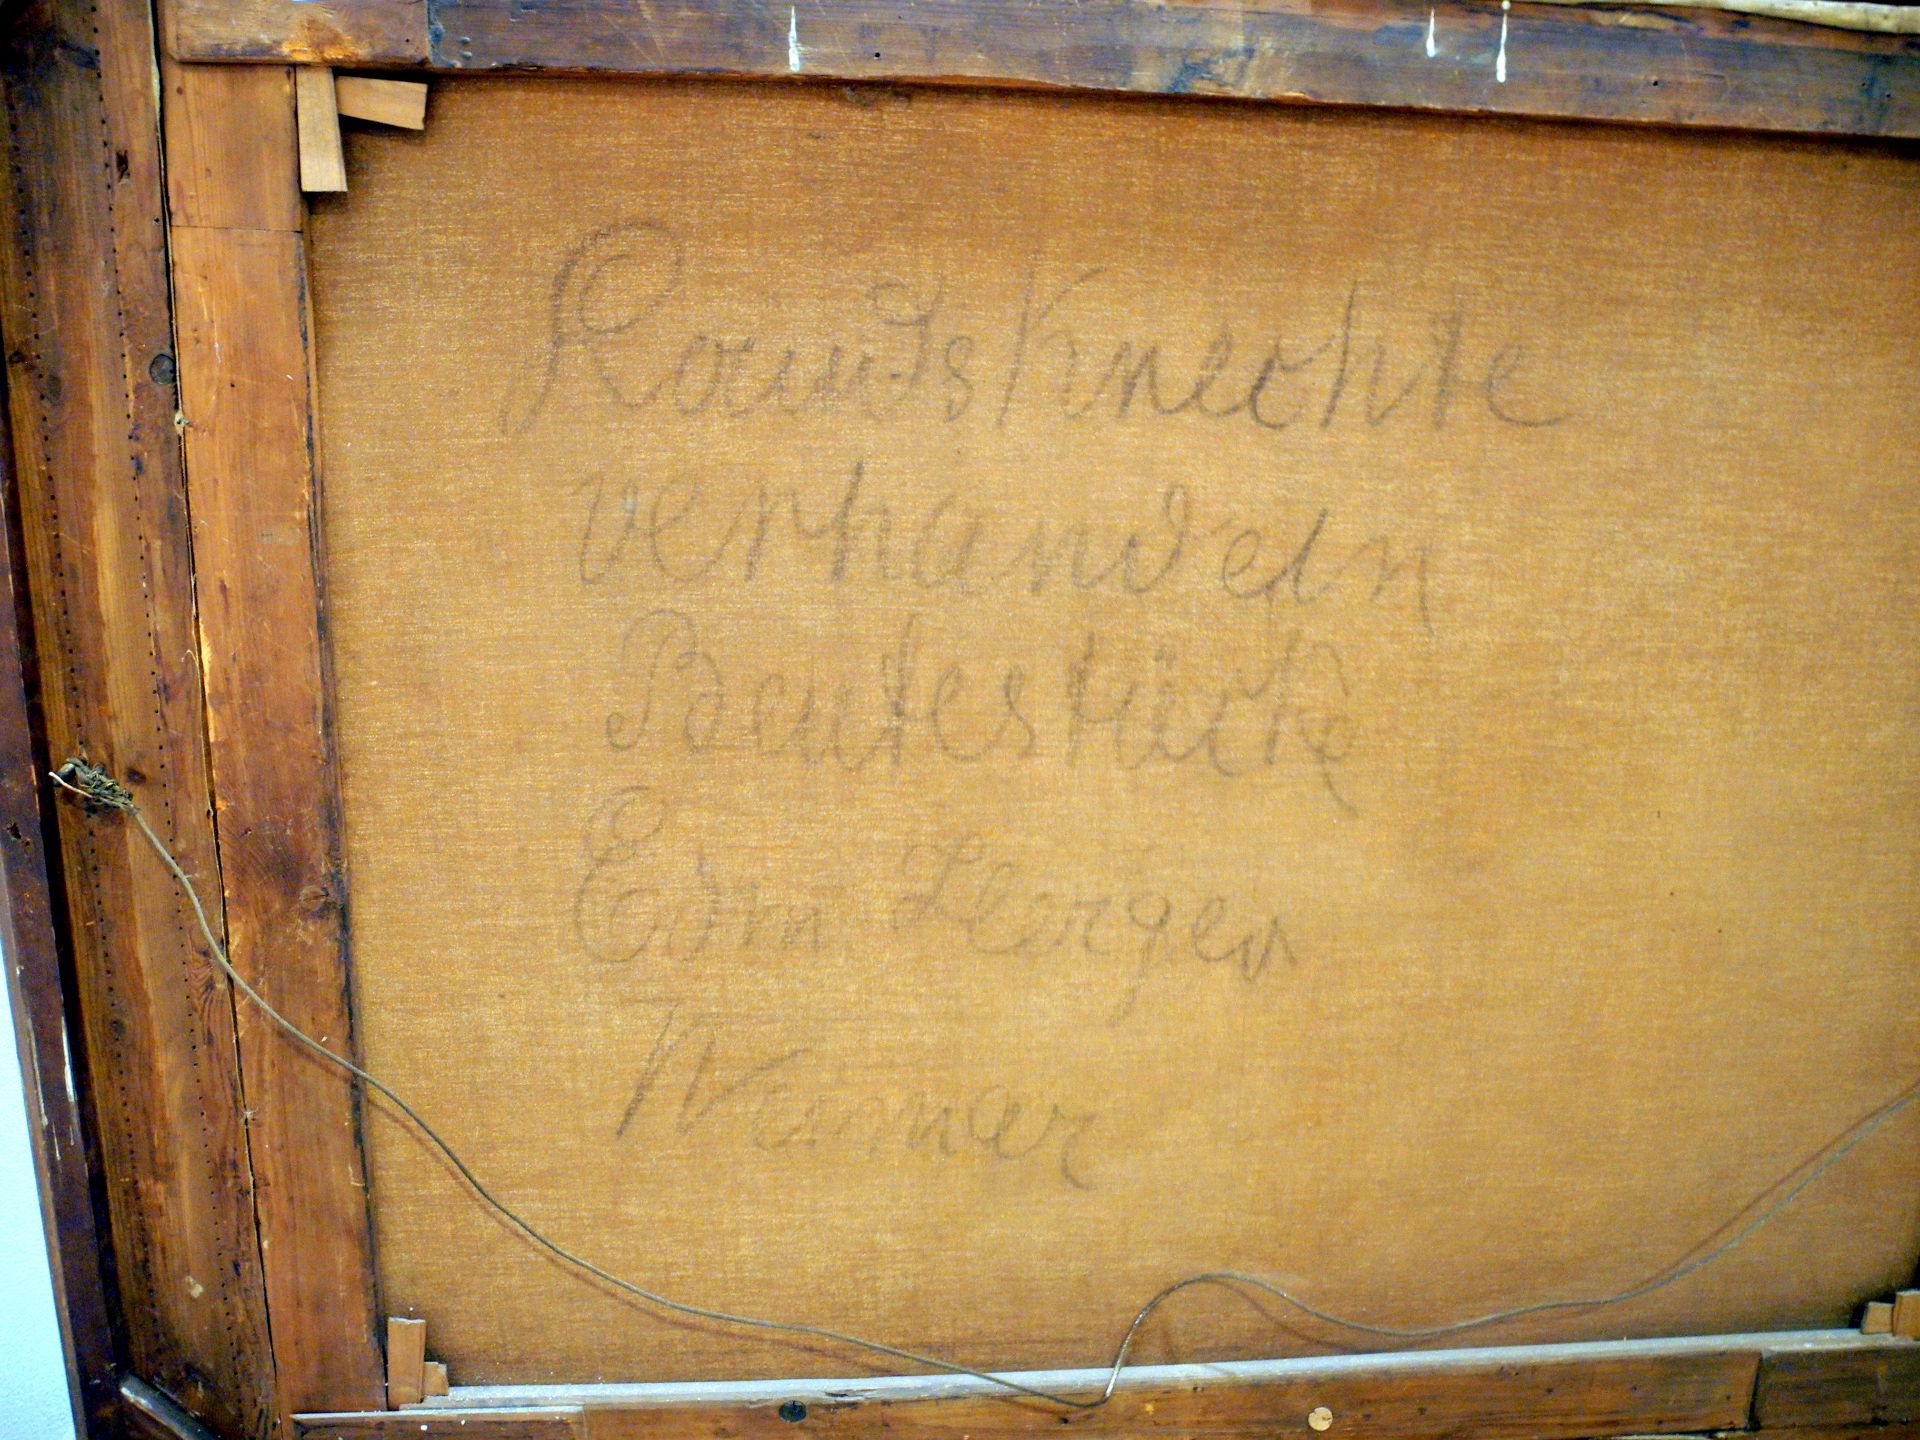 Landsknechte
verhandeln
Beutestücke
Edm Herger
Weimar